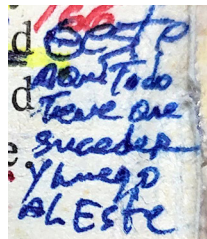 d Oeste
Aquí Todo
d Tiene que
suceder
e. y Luego
AL ESTE